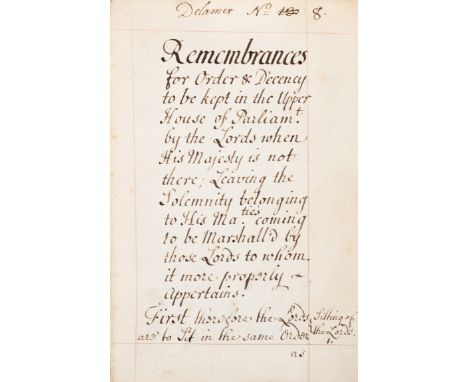 Delamer Nº 180 8.
Remembrances
for Order & Decency
to be kept in the Upper
House of Parliamt.
by the Lords when
His Majesty is not
there; Leaving the
Solemnity belonging
to His Maties. coming
to be Marshall'd by
those Lords to whom
it more properly
Appertains.
First therefore the Lords Sitting of
are to Sit in the same Order the Lords.
1.
as